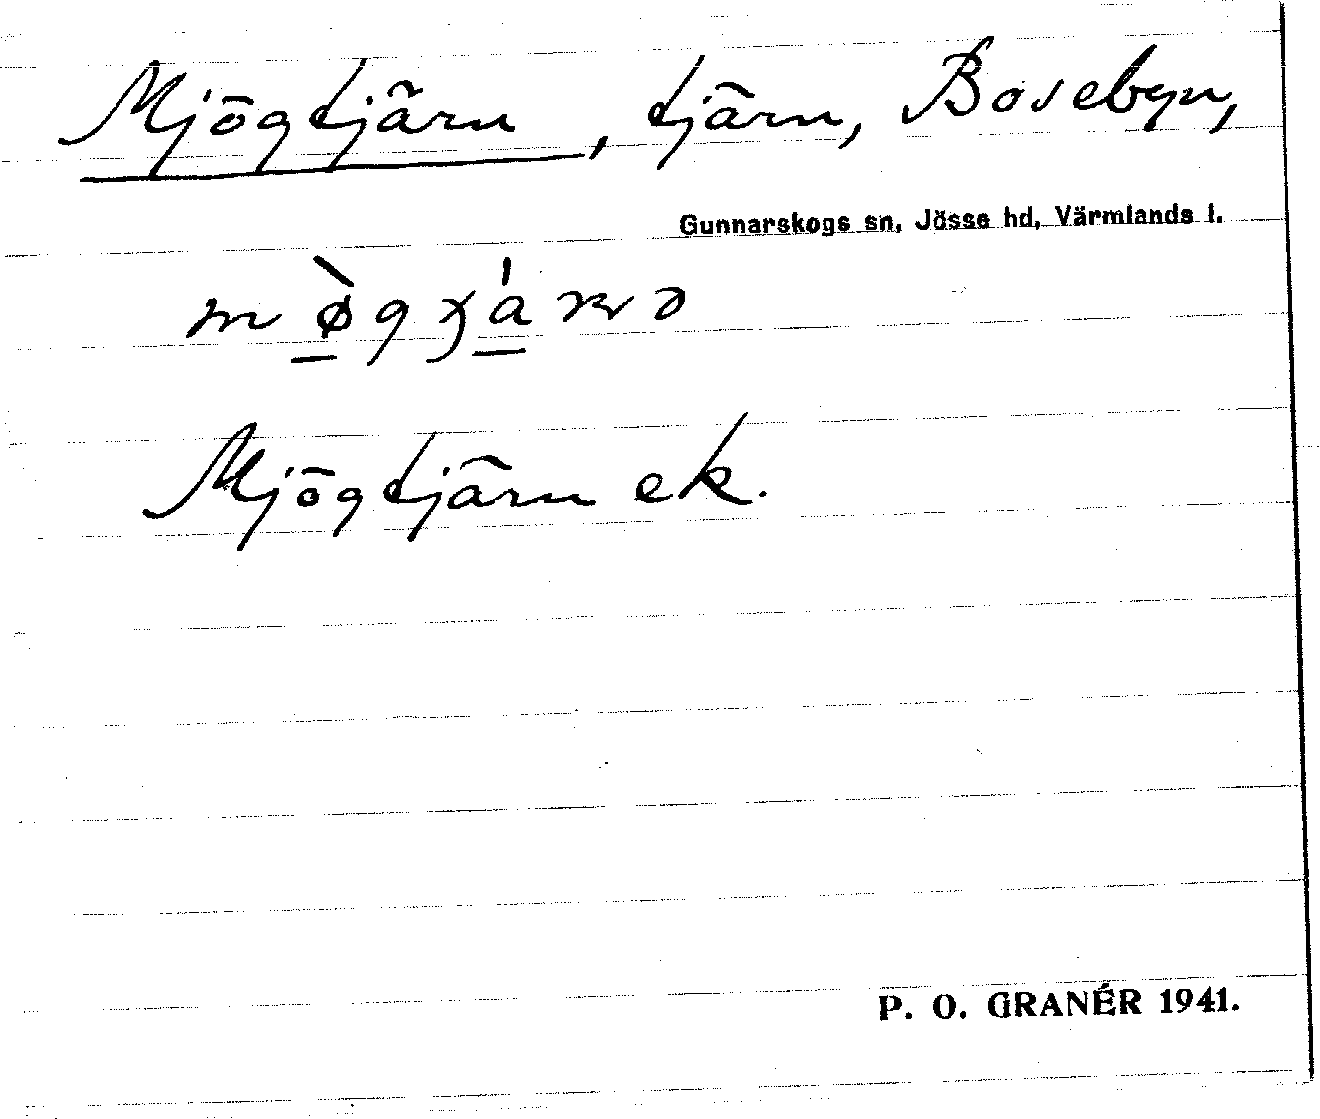 Mjögtjärn, tjärn, Bosebyn,
Gunnarskogs sn, Jösse hd, Värmlands l.
Mjögtjärn ek.
P. O. GRANÉR 1941.